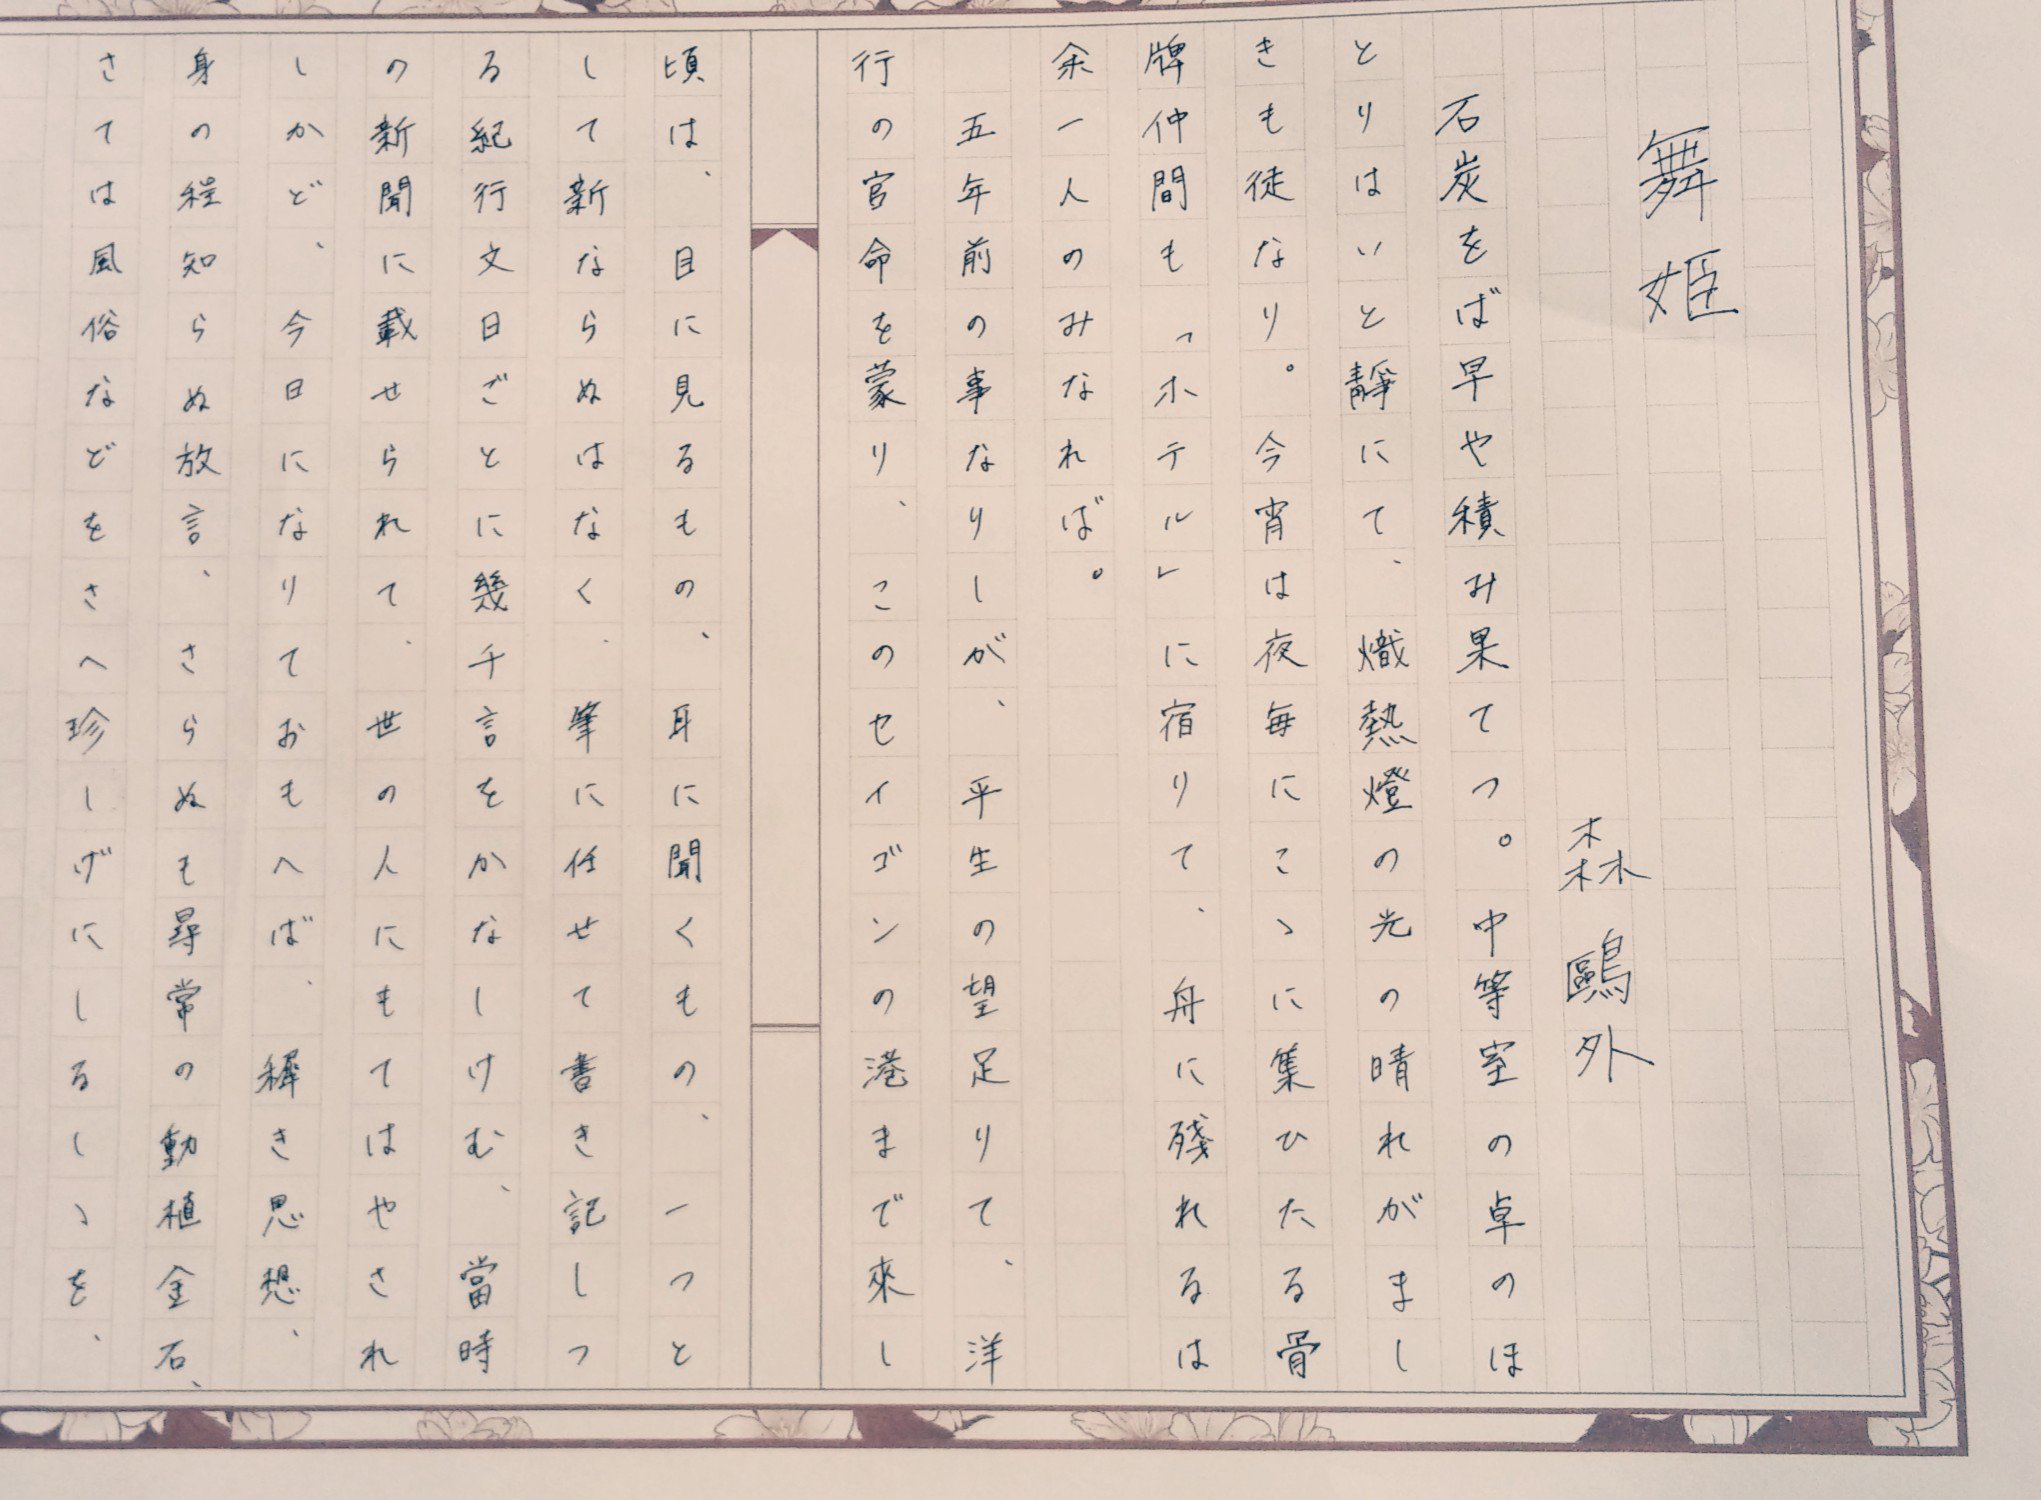 舞姫
森鷗外
石炭をば早や積み果てつ。中等室の卓のほ
とりはいと靜にて、熾熱燈の光の晴れがまし
きも徒なり。今宵は夜毎にこゝに集ひたる骨
牌仲間も「ホテル」に宿りて、舟に残れるは
余一人のみなれば。
五年前の事なりしが、平生の望足りて、洋
行の官命を蒙り、このセイゴンの港まで來し
頃は、目に見るもの、耳に聞くもの、一つと
して新ならぬはなく、筆に任せて書き記しつ
る紀行文日ごとに幾千言をかなしけむ、當時
の新聞に載せられて、世の人にもてはやされ
しかど、今日になりておもへば、穉き思想、
身の程知らぬ放言、さらぬも尋常の動植金石、
さては風俗などをさへ珍しげにしるしゝを、